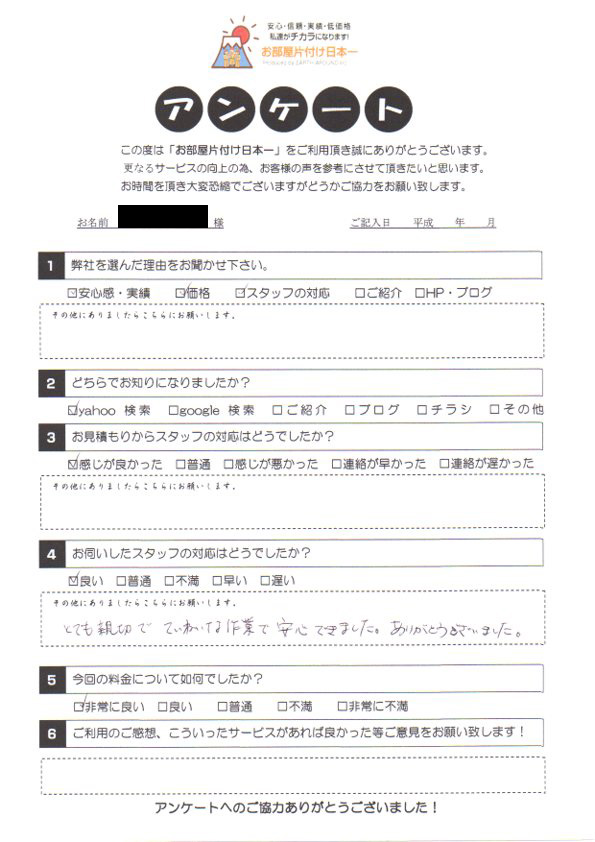 安心・信頼・実績・低価格
私達がチカラになります!
お部屋片付け日本一
Produced by EARTH AROUND inc.
アンケート
この度は「お部屋片付け日本一」をご利用頂き誠にありがとうございます。
更なるサービスの向上の為、お客様の声を参考にさせて頂きたいと思います。
お時間を頂き大変恐縮でございますがどうかご協力をお願い致します。
お名前 様 ご記入日 平成 年 月
1 弊社を選んだ理由をお聞かせ下さい。
☑安心感・実績 ☑価格 ☑スタッフの対応 □ご紹介 □HP・ブログ
その他にありましたらこちらにお願いします。
2 どちらでお知りになりましたか?
☑yahoo 検索 □google 検索 □ご紹介 □ブログ □チラシ □その他
3 お見積もりからスタッフの対応はどうでしたか?
☑感じが良かった □普通 □感じが悪かった □連絡が早かった □連絡が遅かった
その他にありましたらこちらにお願いします。
4 お伺いしたスタッフの対応はどうでしたか?
☑良い □普通 □不満 □早い □遅い
その他にありましたらこちらにお願いします。
とても親切で ていねいな作業で 安心できました。ありがとうございました。
5 今回の料金について如何でしたか?
☑非常に良い □良い □普通 □不満 □非常に不満
6 ご利用のご感想、こういったサービスがあれば良かった等ご意見をお願い致します!
アンケートへのご協力ありがとうございました!